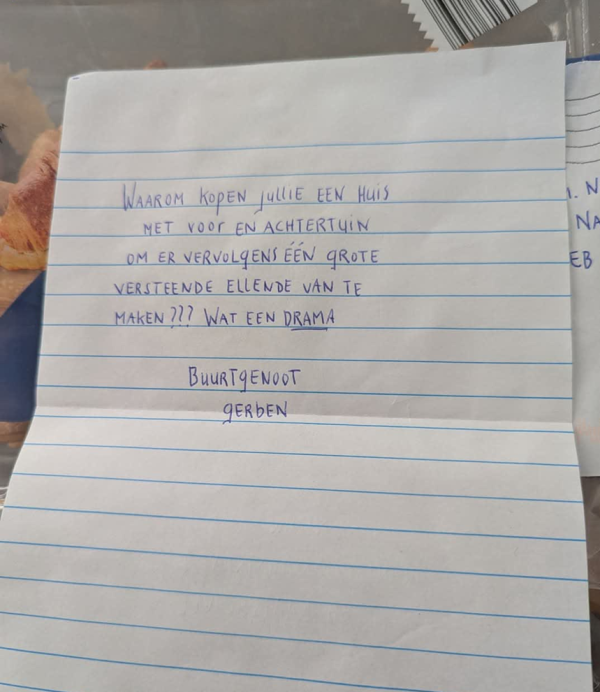 WAAROM KOPEN JULLIE EEN HUIS
MET VOOR EN ACHTERTUIN
OM ER VERVOLGENS ÉÉN GROTE
VERSTEENDE ELLENDE VAN TE
MAKEN??? WAT EEN DRAMA
BUURTGENOOT
GERBEN